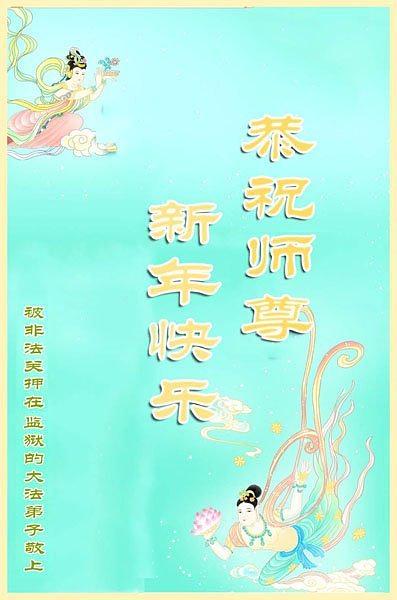 恭祝师尊
新年快乐
被非法关押在监狱的大法弟子敬上